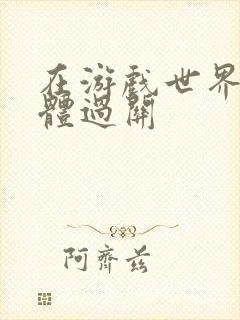 在游戏世界
體過關
阿齊兹